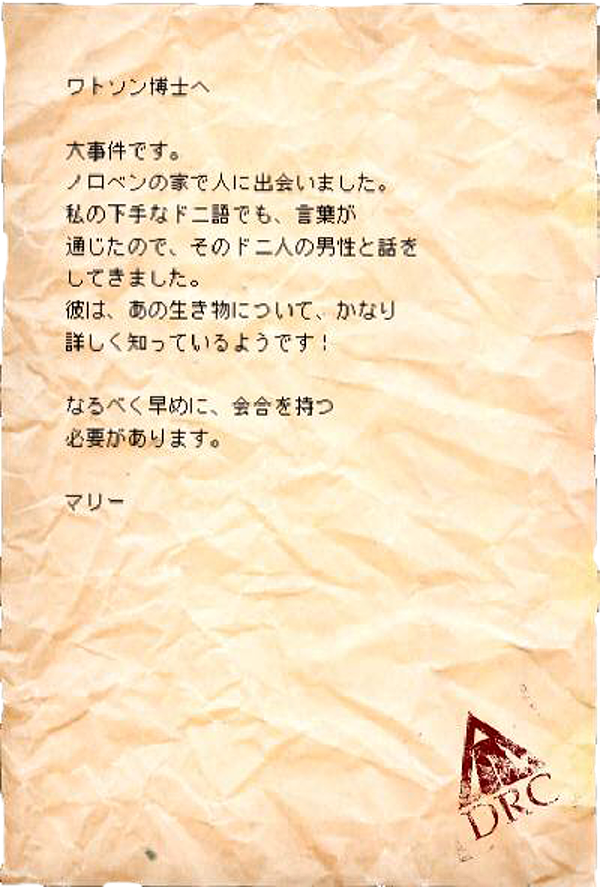 ワトソン博士へ
大事件です。
ノロベンの家で人に出会いました。
私の下手なドニ語でも、言葉が
通じたので、そのドニ人の男性と話を
してきました。
彼は、あの生き物について、かなり
詳しく知っているようです！
なるべく早めに、会合を持つ
必要があります。
マリー
DRC